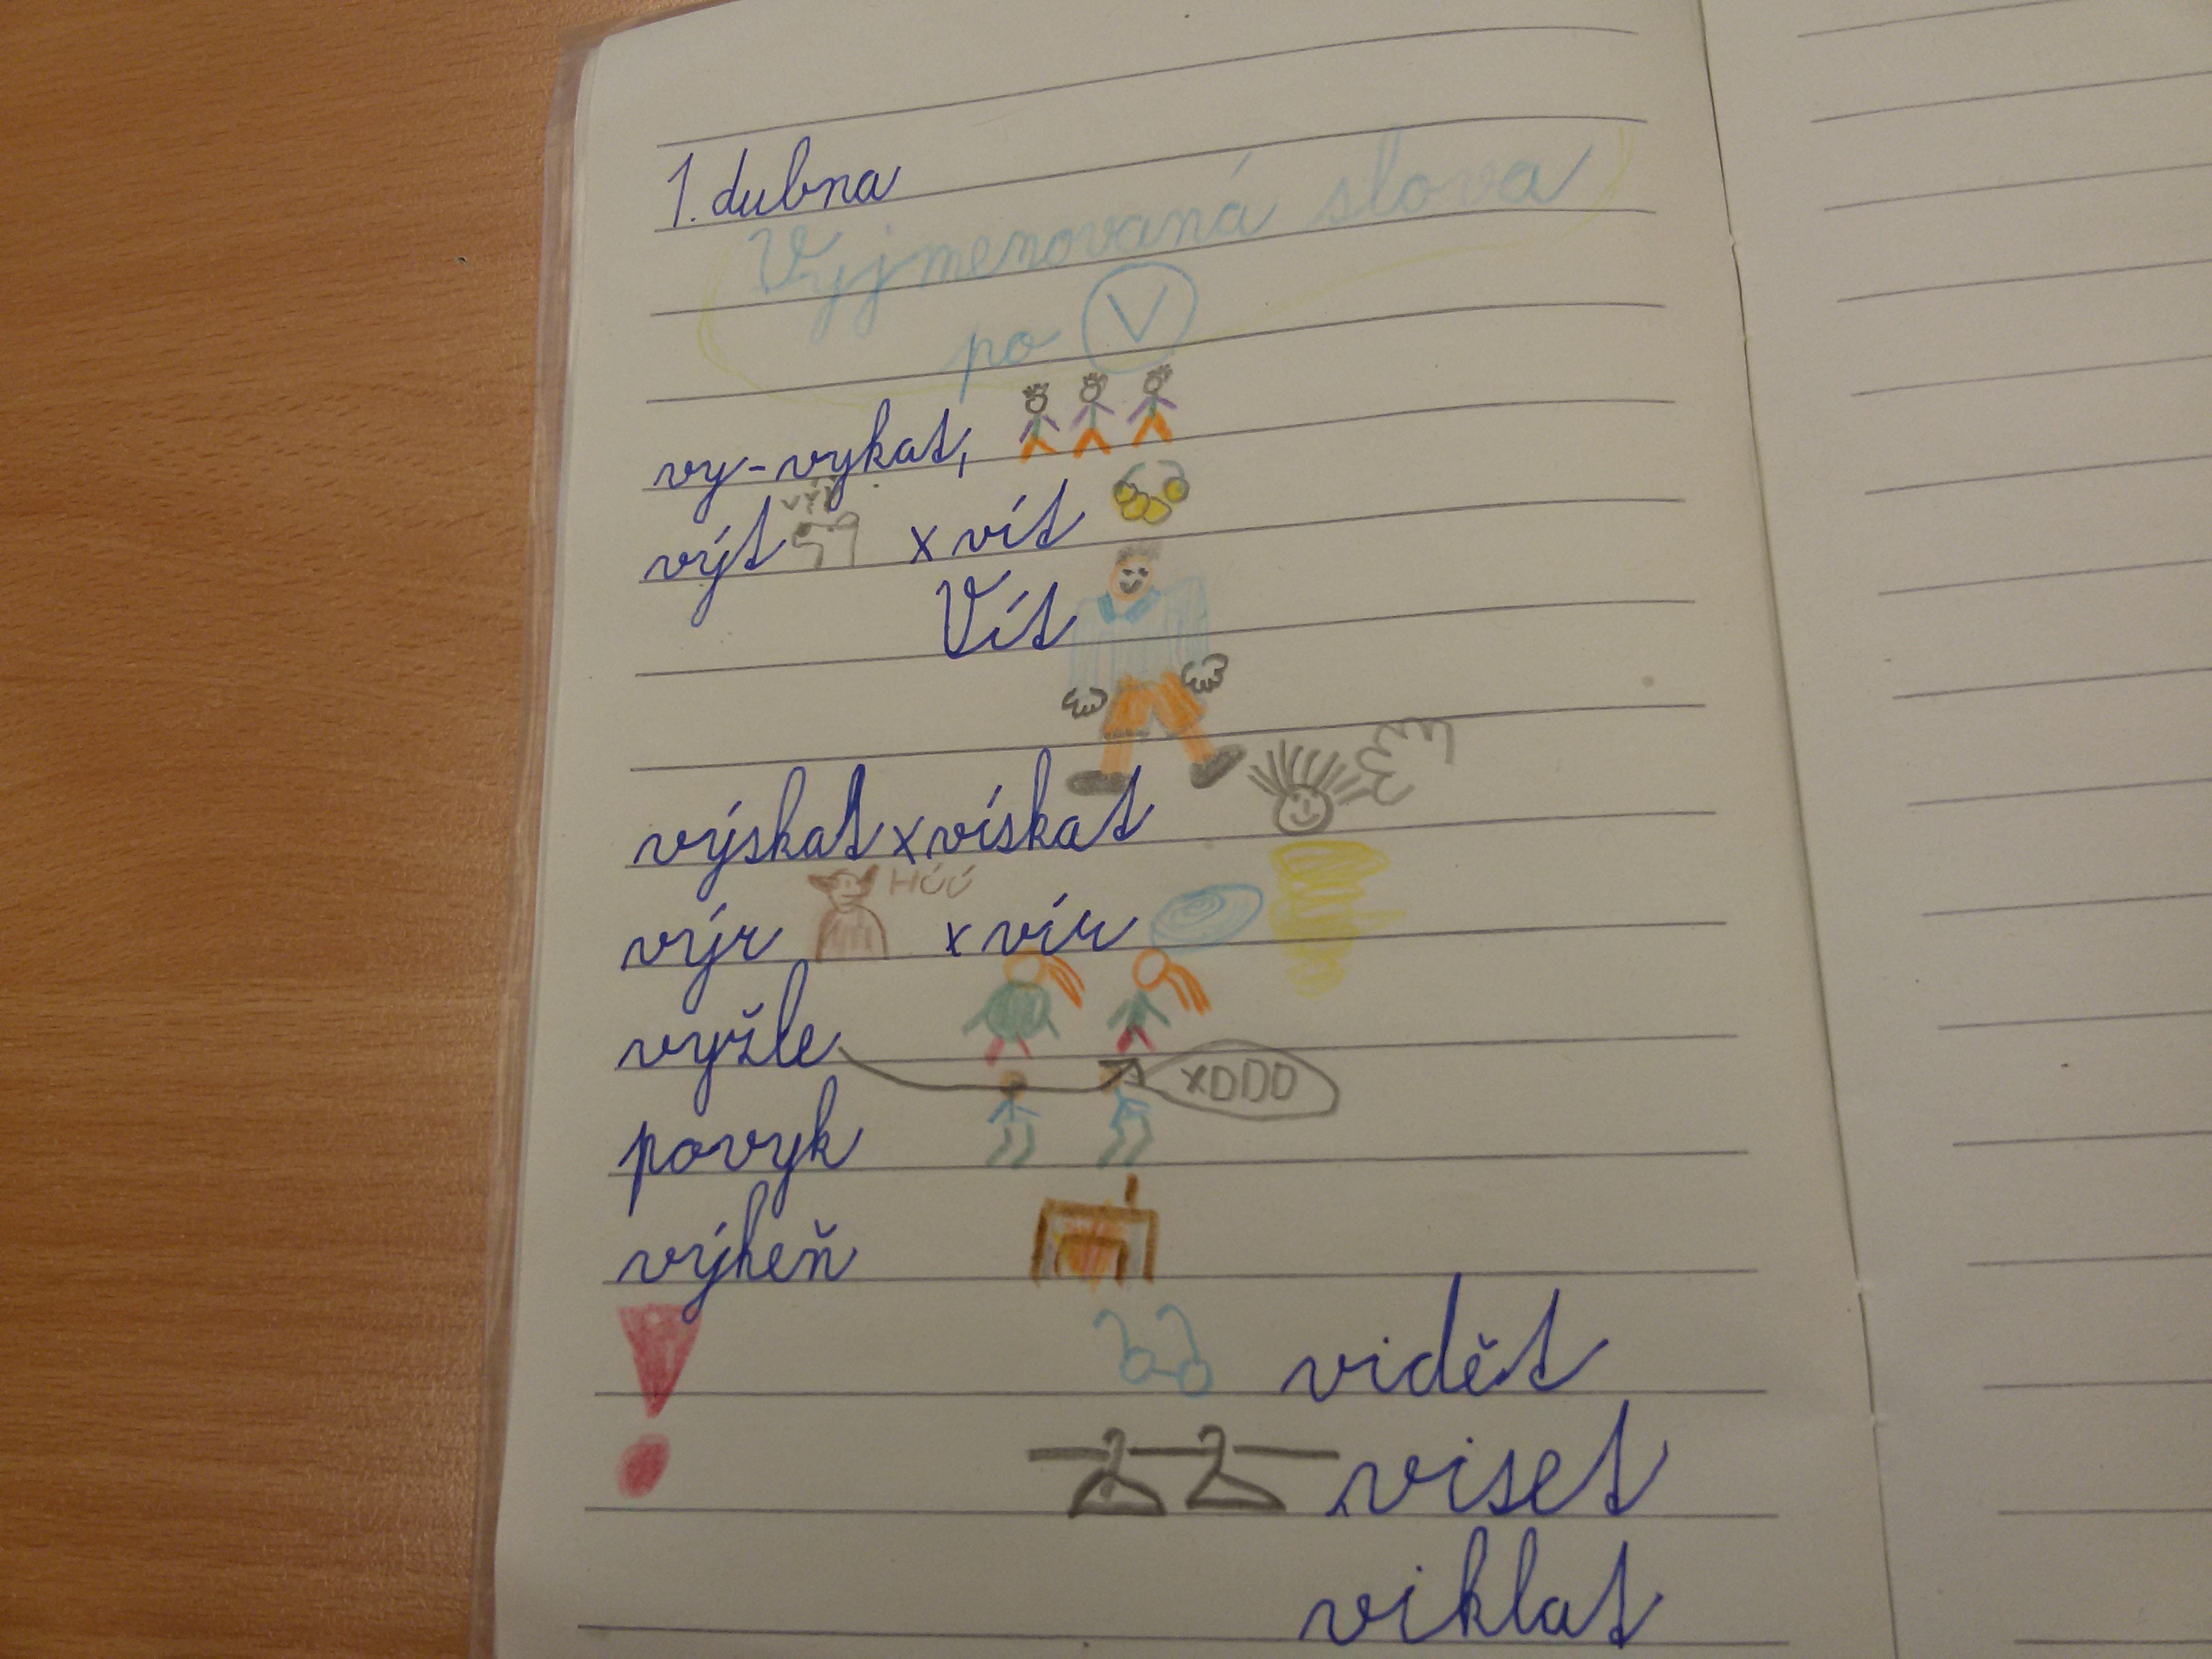 1. dubna
Vyjmenovaná slova
po V
vy - vykat,
výt výý x vít
Vít
výskat x vískat
výr HÚÚ x vír
vyžle
XDDD
povyk
výheň
!
vidět
viset
viklat